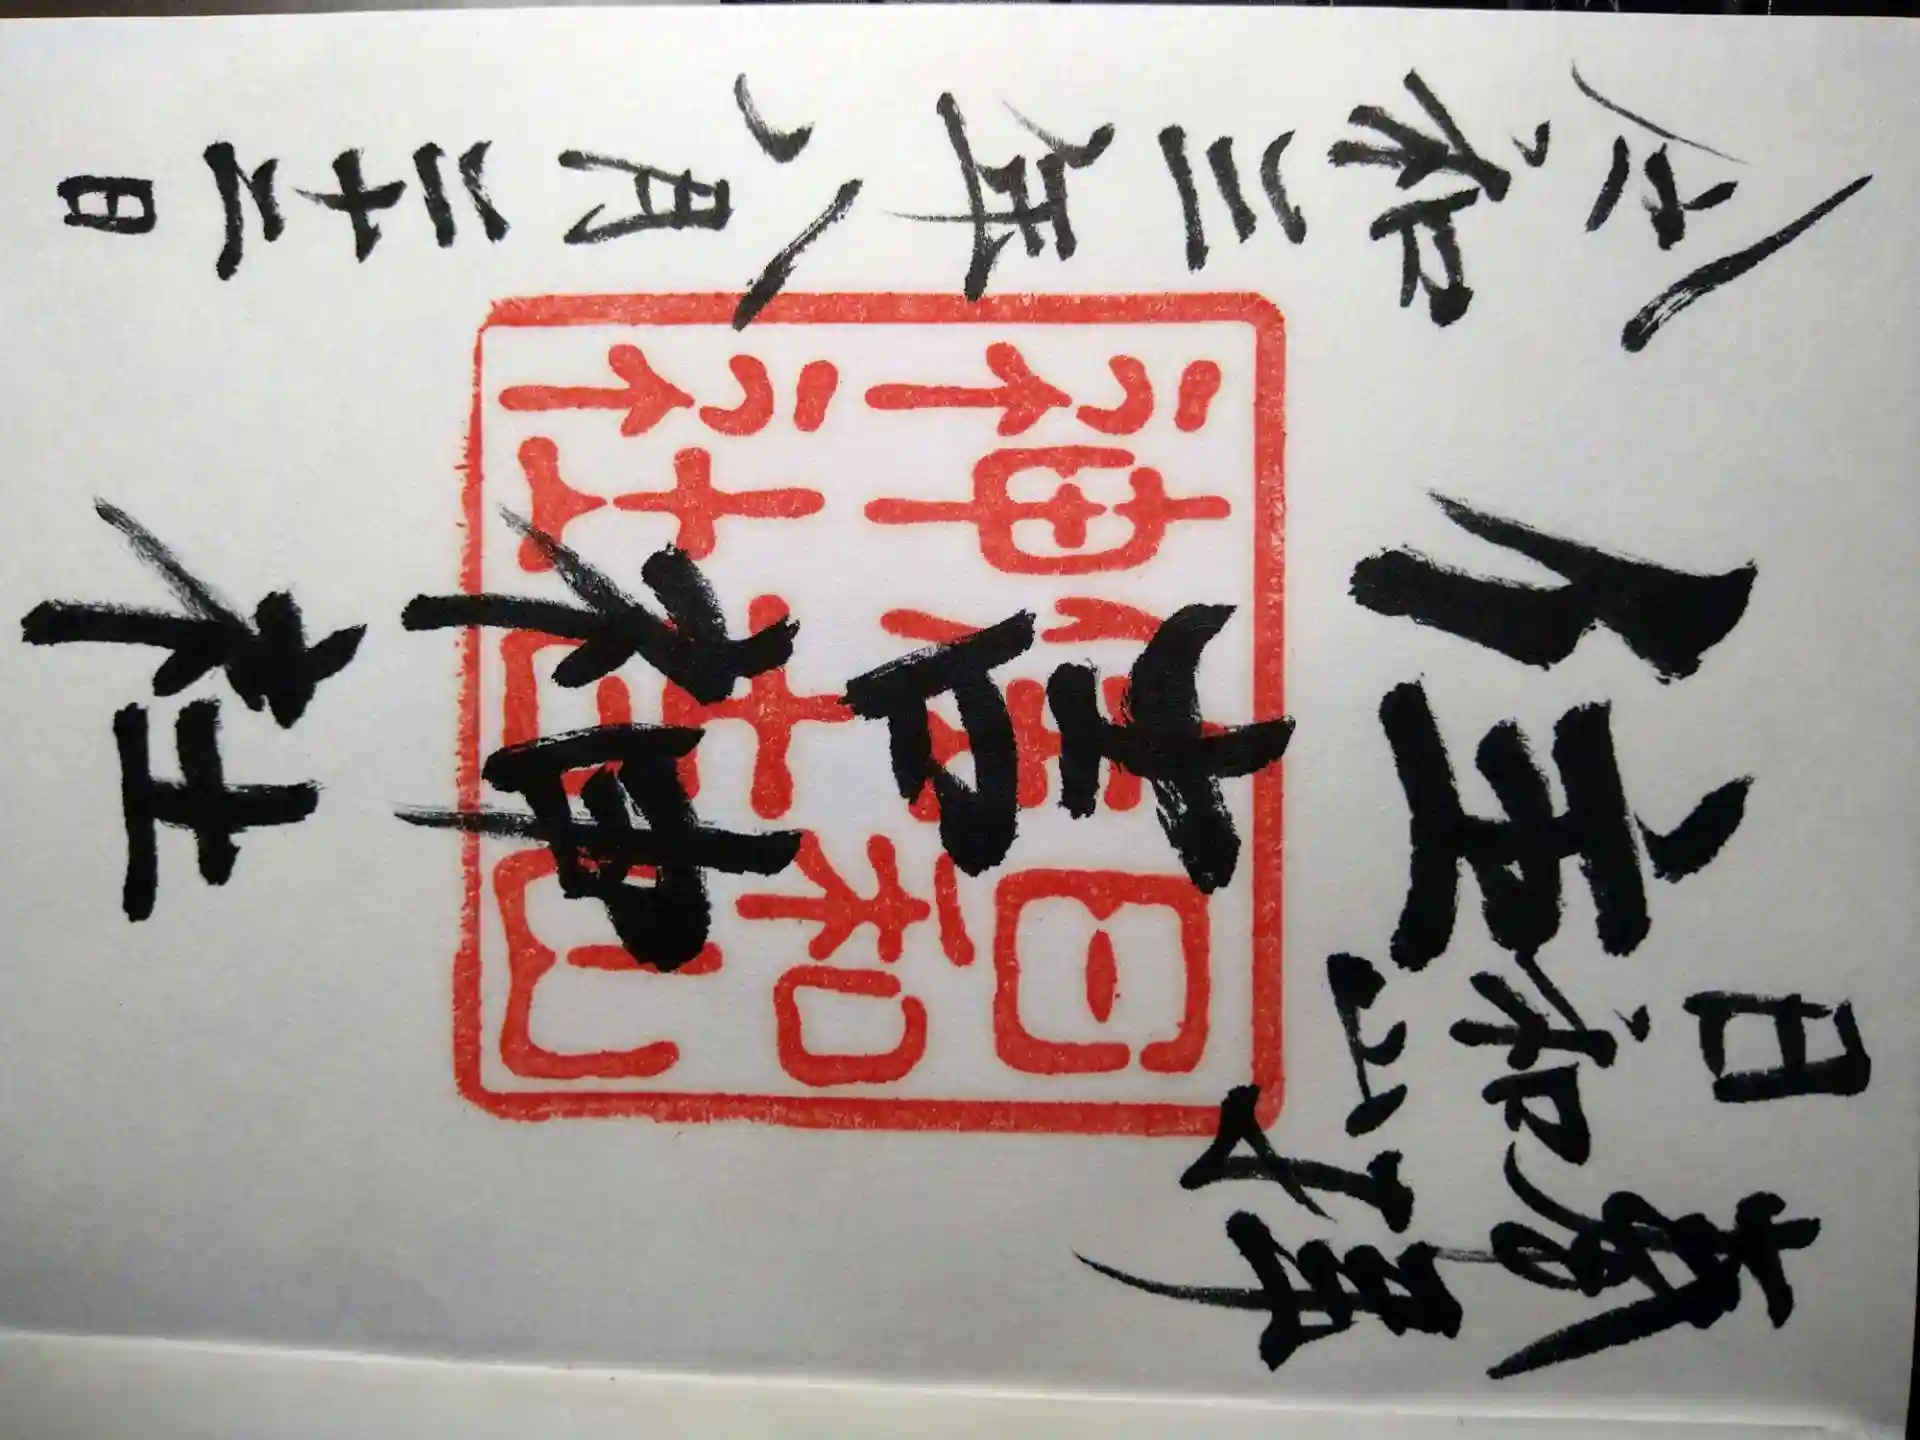 奉拝
日和山
住吉神社
令和三年八月二十三日
日和山
住吉
神社